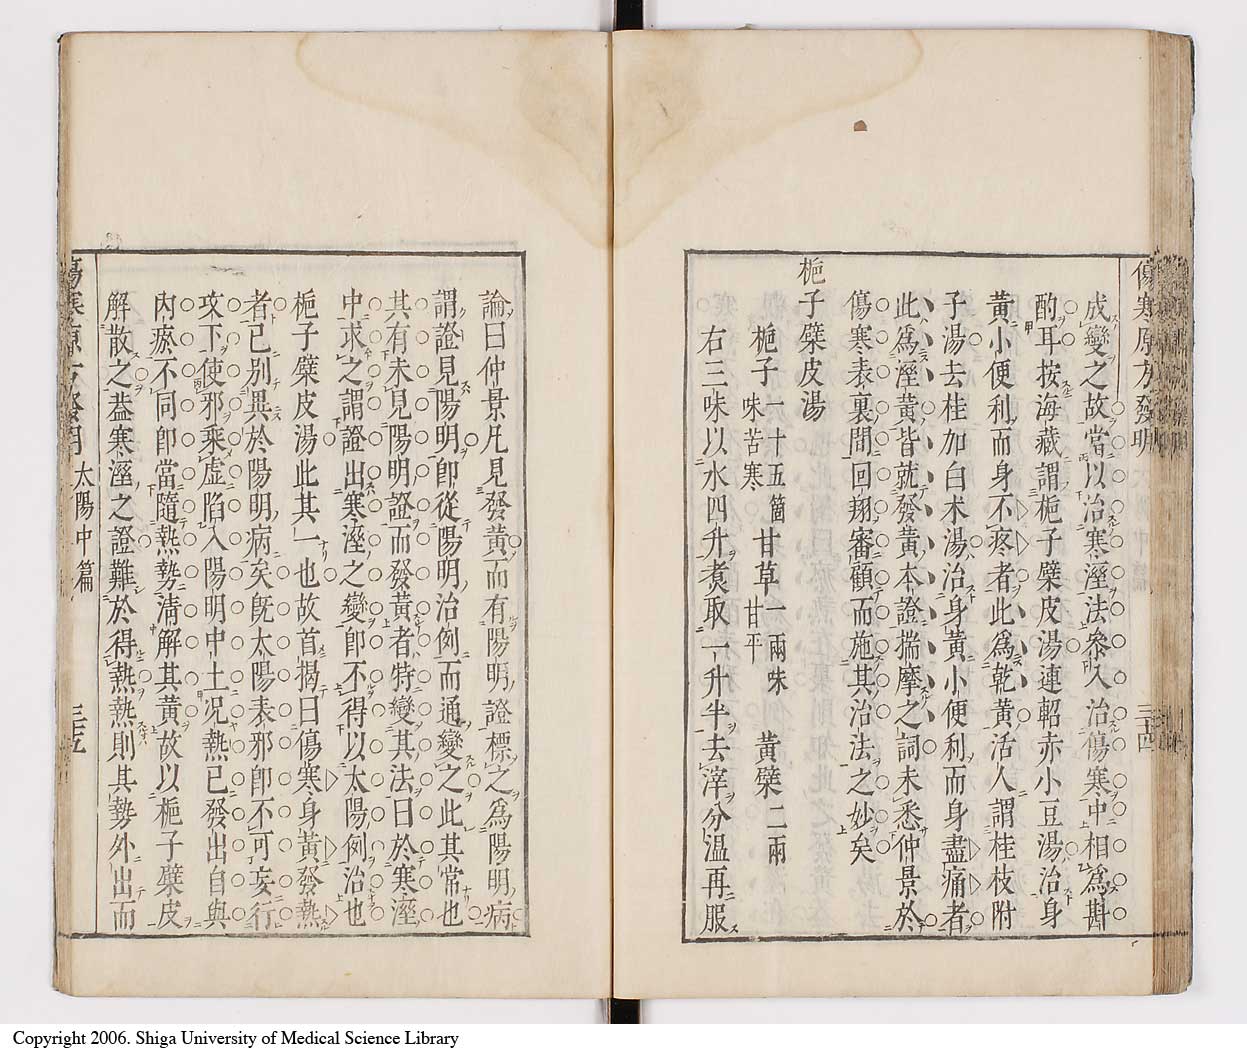 傷寒原方發明
三十四
成變之故當以治寒溼法參入治傷寒中相為斟
酌耳按海藏謂梔子蘗皮湯連軺赤小豆湯治身
黃小便利而身不疼者此為乾黃活人謂桂枝附
子湯去桂加白术湯治身黃小便利而身盡痛者
此為溼黃皆就發黃本證揣摩之詞未悉仲景於
傷寒表裏間回翔審顧而施其治法之妙矣
梔子蘗皮湯
梔子一十五箇味苦寒 甘草一兩味甘平 黃蘗二兩
右三味以水四升煑取一升半去滓分温再服
論曰仲景凡見發黃而有陽明證標之為陽明病
謂證見陽明即從陽明治例而通變之此其常也
其有未見陽明證而發黃者特變其法曰於寒溼
中求之謂證出寒溼之變即不得以太陽例治也
梔子蘗皮湯此其一也故首揭曰傷寒身黃發熱
者已別異於陽明病矣旣太陽表邪即不可妄行
攻下使邪乘虛陷入陽明中土况熱已發出自與
內瘀不同即當隨熱勢清解其黃故以梔子蘗皮
解散之葢寒溼之證難於得熱熱則其勢外出而
傷寒原方發明
太陽中篇
三十五
Copyright 2006. Shiga University of Medical Science Library